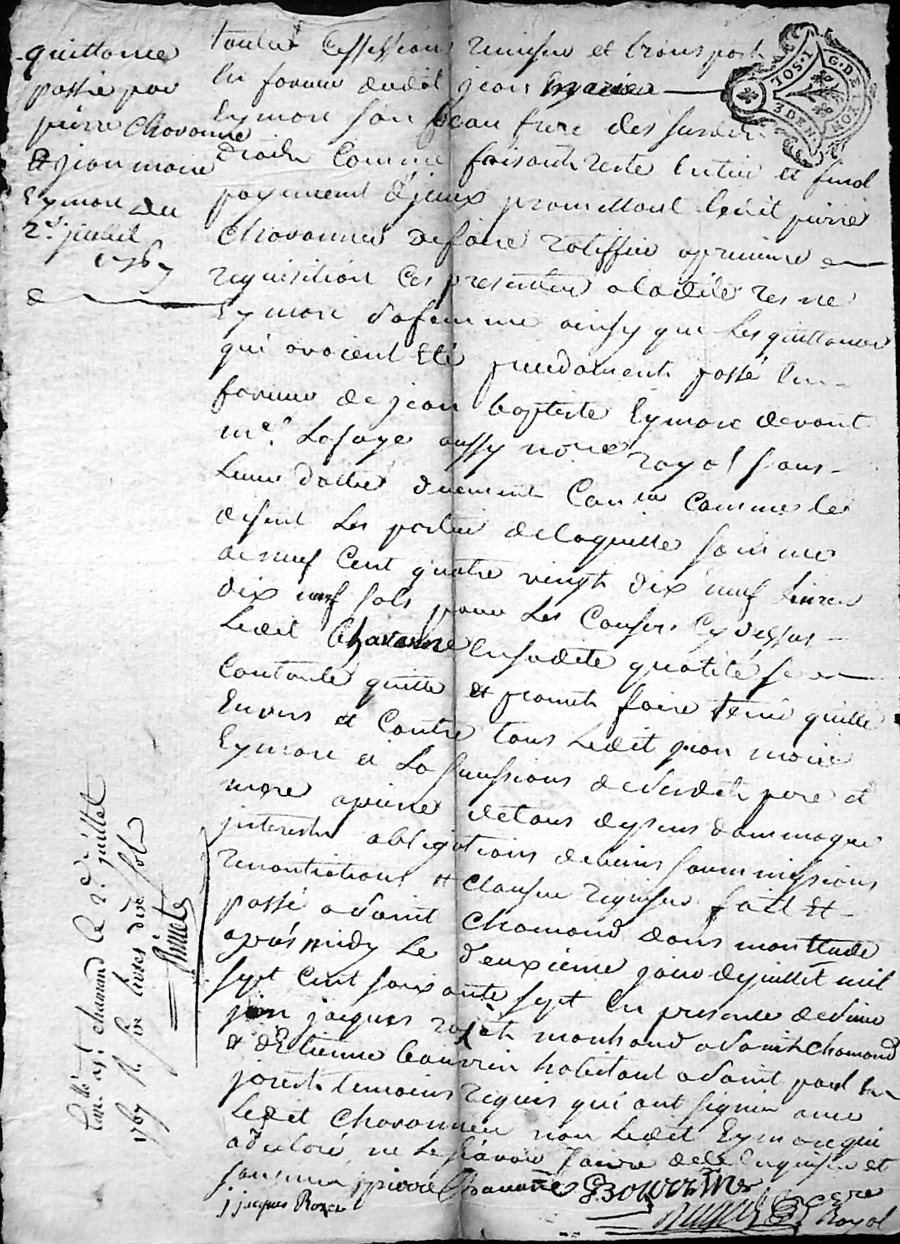 quittance
passé par
pierre Chavanne
et jean marie
Eymar du
2e juillet
1767
toutes Cession remise et transport
en faveur dudit jean marie
Eymar son beau frere des susdits
droits Comme faisant reste entier et final
payement d'iceux promettant ledit pierre
Chavanne de faire ratiffier a premiere
requisition Ces presentes a ladite
Eymar sa femme ainsy que les quittances
qui avoient été precedament passé en
faveur de jean baptiste Eymar devant
me Lafaye aussy nore royal sous
Leurs dattes duement Comme le
disent les parties de laquelle somme
de neuf Cent quatre vingt dix neuf Livres
dix neuf sols pour les Causes Cy dessus
Ledit Chavanne en sadite qualité se
Contente quitte et promet faire tenir quitte
Envers et Contre tous Ledit jean marie
Eymar et la sucession desdits pere et
mere a peine de tous depens dommages
interests obligations de biens soummissions
renontiations et clauses requises fait et
passé a saint Chamond dans mon Etude
après midy Le deuxieme jour de juillet mil
sept Cent soixante sept en presence de sieur
jean jacques marchand a saint chamond
et d'Etienne bouvrin habitant a saint paul en
jarest temoins requis qui ont signé avec
Ledit Chavanne non Ledit Eymar qui
a declaré ne le sçavoir faire de ce enquis et
sommé pierre Chavanne EBouvrin
j jacques
Royal
a st chamond le 2e juillet
1767 Rt six livres dix sols
G. DE